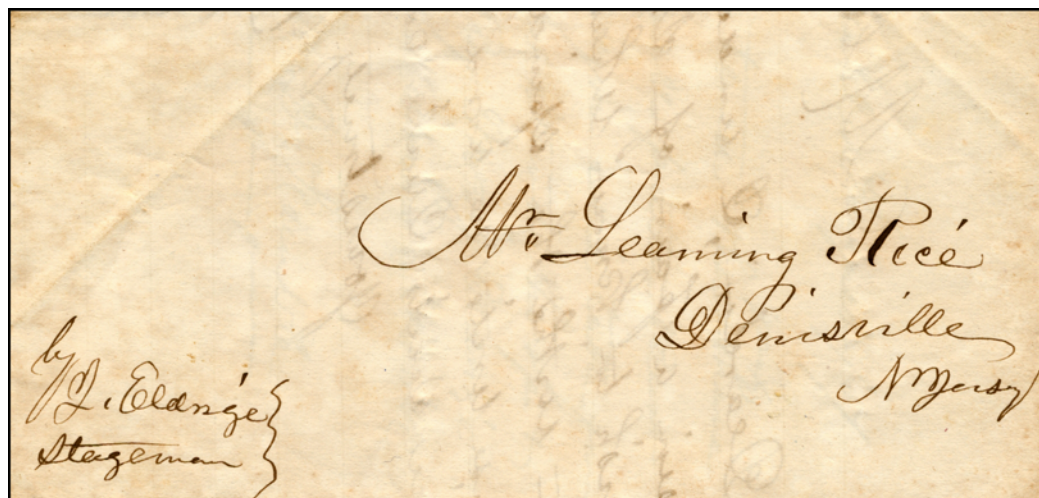 Mr. Leaming Rice
Denisville
N Jersy
by
J. Eldrige
Stageman